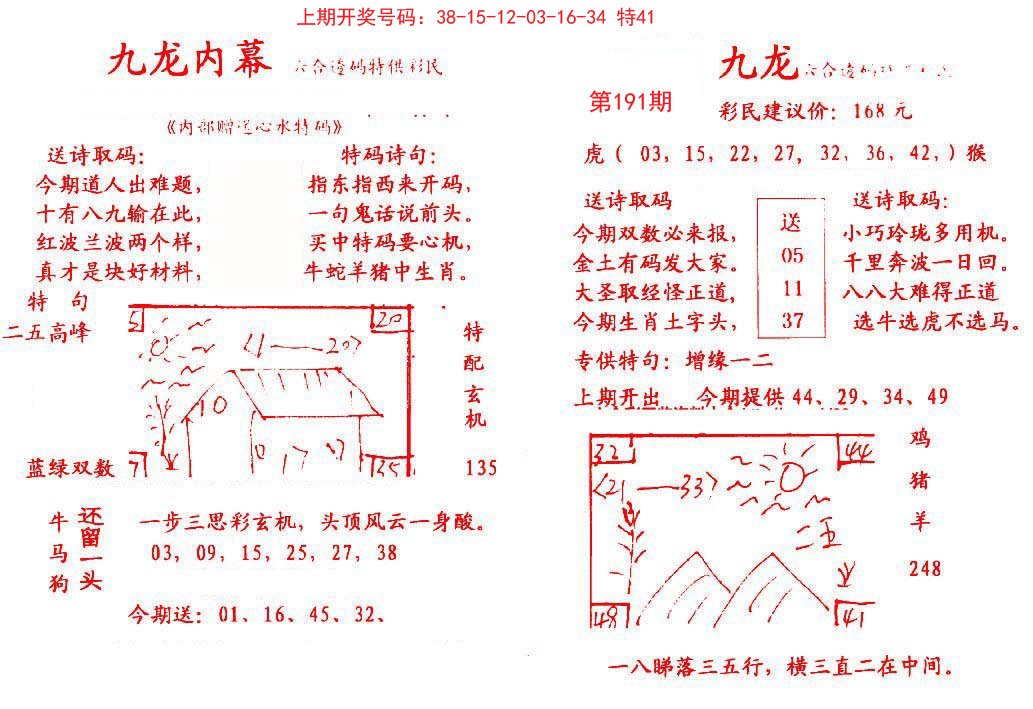 上期开奖号码：38-15-12-03-16-34 特41
九龙内幕 六合透码特供彩民
《内部赠送心水特码》
送诗取码：
今期道人出难题，
十有八九输在此，
红波兰波两个样，
真才是块好材料，
特码诗句：
指东指西来开码，
一句鬼话说前头。
买中特码要心机，
牛蛇羊猪中生肖。
特 句
二五高峰
蓝绿双数
20
《1——20》
10
35
特配玄机
135
牛马狗
还留一头
一步三思彩玄机，头顶风云一身酸。
03，09，15，25，27，38
今期送：01、16、45、32、
九龙 六合透码
第191期
彩民建议价：168 元
虎（ 03，15，22，27，32，36，42，）猴
送诗取码
今期双数必来报，
金土有码发大家。
大圣取经怪正道，
今期生肖土字头，
送
05
11
37
送诗取码：
小巧玲珑多用机。
千里奔波一日回。
八八大难得正道
选牛选虎不选马。
专供特句：增缘一二
上期开出 今期提供 44、29、34、49
32
44
《21——33》
48
41
鸡
猪
羊
248
一八睇落三五行，横三直二在中间。